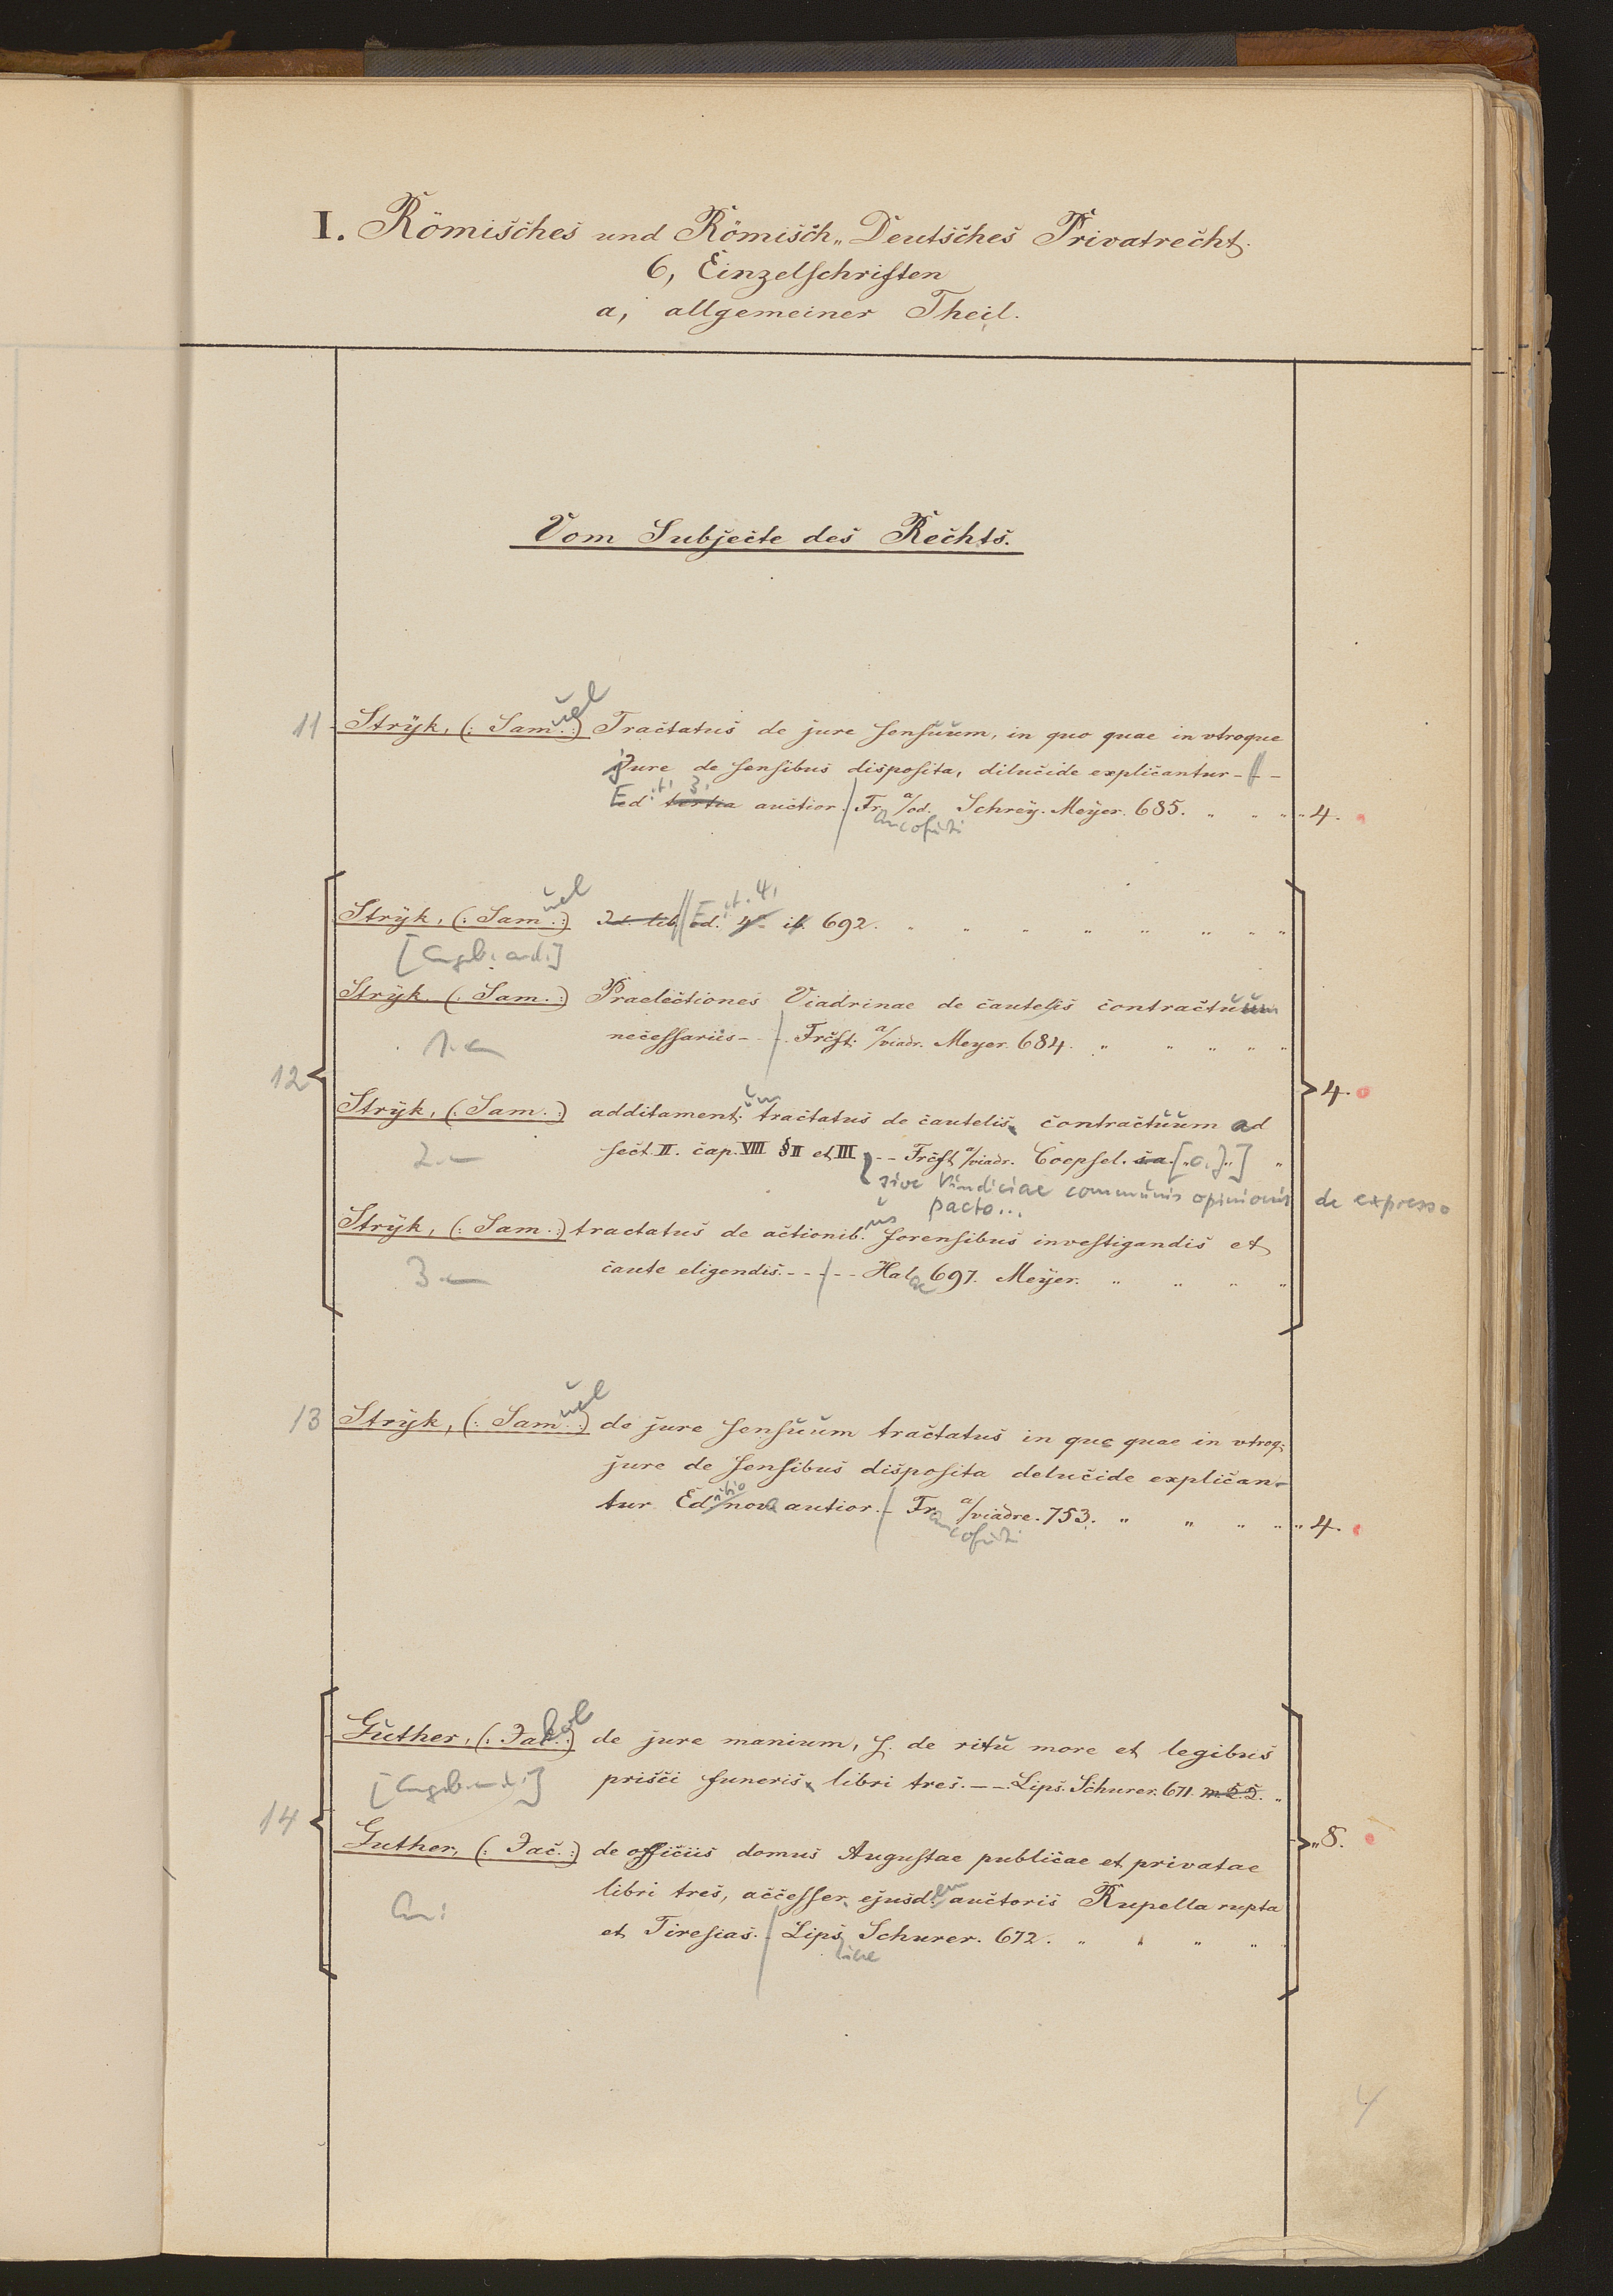 I. Römisches und Römisch„Deutsches Privatrecht.
6, Einzelschriften
a, allgemeiner Theil.
Vom Subjecte des Rechts.
11 Stryk, (: Samuel :) Tractatus de jure sensuum, in quo quae in vtroque
jure de sensibus disposita, dilucide explicantur - -
Edit. 3. tertia auctior. Francofurti a/od. Schrey. Meyer. 685. „ „ „ „ 4.
Stryk, (: Samuel :) Id. lib. Edit. 4. ib. 692. „ „ „ „ „ „ „ „
[Angeb. and.]
Stryk. (: Sam. :) Praelectiones Viadrinae de cautelis contractuum
necessariis - - Frcft. a/viadr. Meyer. 684. „ „ „ „ „
1.
12 4.
Stryk, (: Sam. :) additament. um tractatus de cautelis contractuum ad
sect. II. cap. VIII § II et III -- Frcft a/viadr. Coepsel. s.a. [o.J.] „
2.
sive Vindiciae communis opinionis de expresso
pacto...
Stryk, (: Sam. :) tractatus de actionib.us forensibus investigandis et
caute eligendis. - - - - - Halae 697. Meyer. „ „ „ „
3.
13 Stryk, (: Samuel :) de jure sensuum tractatus in quo quae in vtroq;
jure de sensibus disposita delucide explican-
tur. Editio nova autior. - Francofurti a/viadre. 753. „ „ „ „ „ 4.
Guther, (: Jakob :) de jure manium, s. de ritu more et legibus
prisci funeris, libri tres. - - Lips. Schurer. 671. „
[Angeb. and.]
14 „ 8.
Guther, (: Jac. :) de officiis domus Augustae publicae et privatae
libri tres, accesser. ejusd.em auctoris Rupella rupta
An:
et Tiresias. - Lipsiae Schurer. 672. „ „ „ „
4